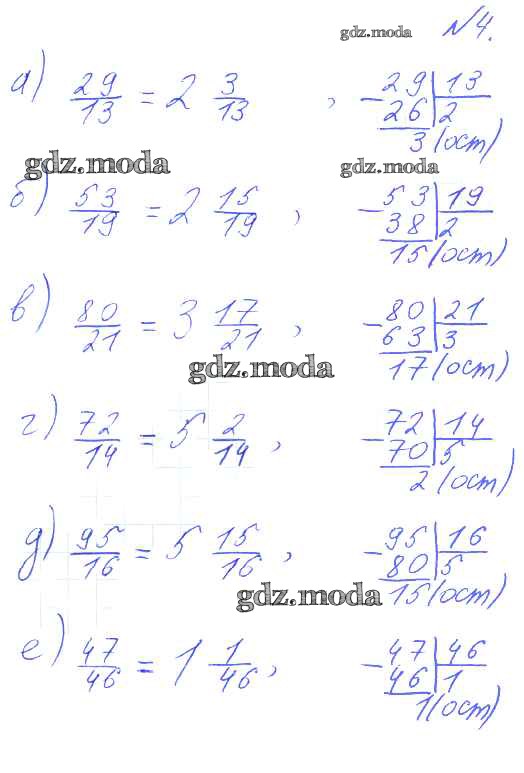 gdz.moda №4.
а) 29/13 = 2 3/13 , − 29 | 13
26 | 2
3 (ост)
gdz.moda gdz.moda
б) 53/19 = 2 15/19 , − 53 | 19
38 | 2
15 (ост)
в) 80/21 = 3 17/21 , − 80 | 21
63 | 3
17 (ост)
gdz.moda
г) 72/14 = 5 2/14 , − 72 | 14
70 | 5
2 (ост)
д) 95/16 = 5 15/16 , − 95 | 16
80 | 5
15 (ост)
gdz.moda
е) 47/46 = 1 1/46 , − 47 | 46
46 | 1
1 (ост)